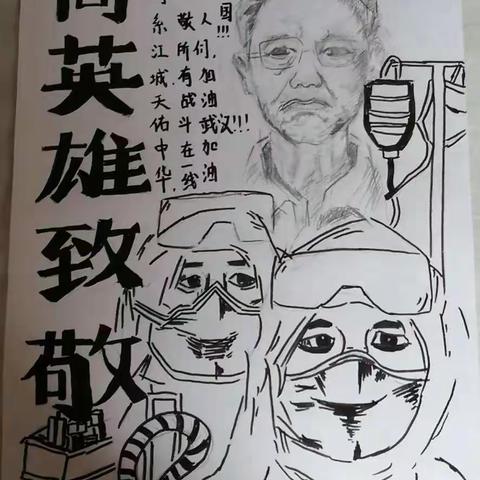 向英雄致敬
系江城.天佑中华.
敬所有战斗在一线
人们,加油武汉!!!加油
国!!!